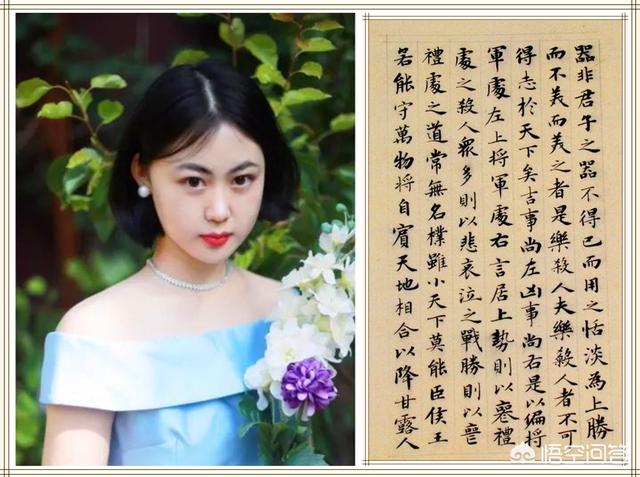 器非君子之器不得已而用之恬淡為上勝
而不美而美之者是樂殺人夫樂殺人者不可
得志於天下矣吉事尚左凶事尚右是以偏將
軍處左上將軍處右言居上勢則以喪禮
處之殺人眾多則以悲哀泣之戰勝則以喪
禮處之道常無名樸雖小天下莫能臣侯王
若能守萬物將自賓天地相合以降甘露人
悟空问答